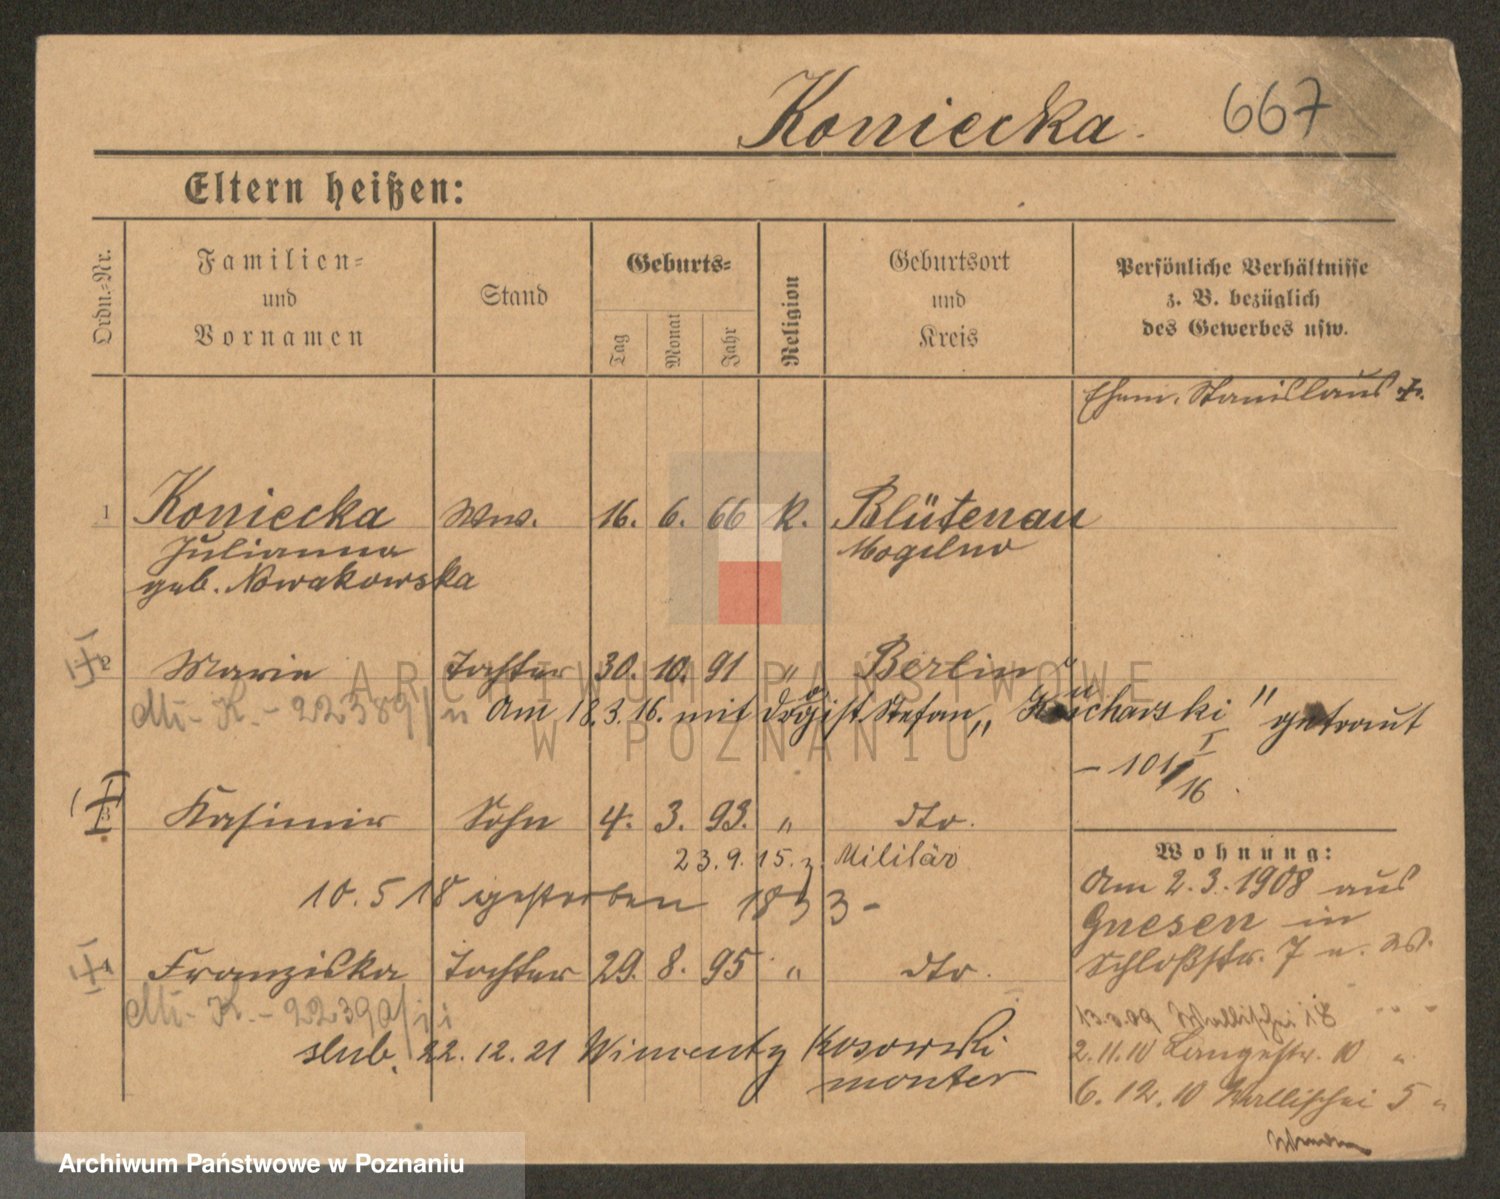 Koniecka. 667
Eltern heißen:
Ordn.-Nr.
Familien-
und
Vornamen
Stand
Geburts-
Tag
Monat
Jahr
Religion
Geburtsort
und
Kreis
Persönliche Verhältnisse
z. B. bezüglich
des Gewerbes usw.
Ehem. Stanislaus
1 Koniecka Ww. 16. 6. 66 k. Blütenau
Julianna Mogilno
geb. Nowakowska
2 Marie Tochter 30. 10. 91 " Berlin
22389
Am 18.3.16. mit Stefan „Kucharski" getraut
- 101/I 16.
3 Kasimir Sohn 4. 3. 93. " dto.
23.9.15. z. Militär
10.5.18 gestorben 1833-
4 Franziska Tochter 29. 8. 95 " dto.
2239
slub. 22.12.21 Wincenty Kosowski
monter
Wohnung:
Am 2.3.1908 aus
Gnesen in
Schloßstr. 7
Wallischei
2.11.10 Langestr. 10 "
6.12.10 Wallischei 5 "
ARCHIWUM PAŃSTWOWE
W POZNANIU
Archiwum Państwowe w Poznaniu